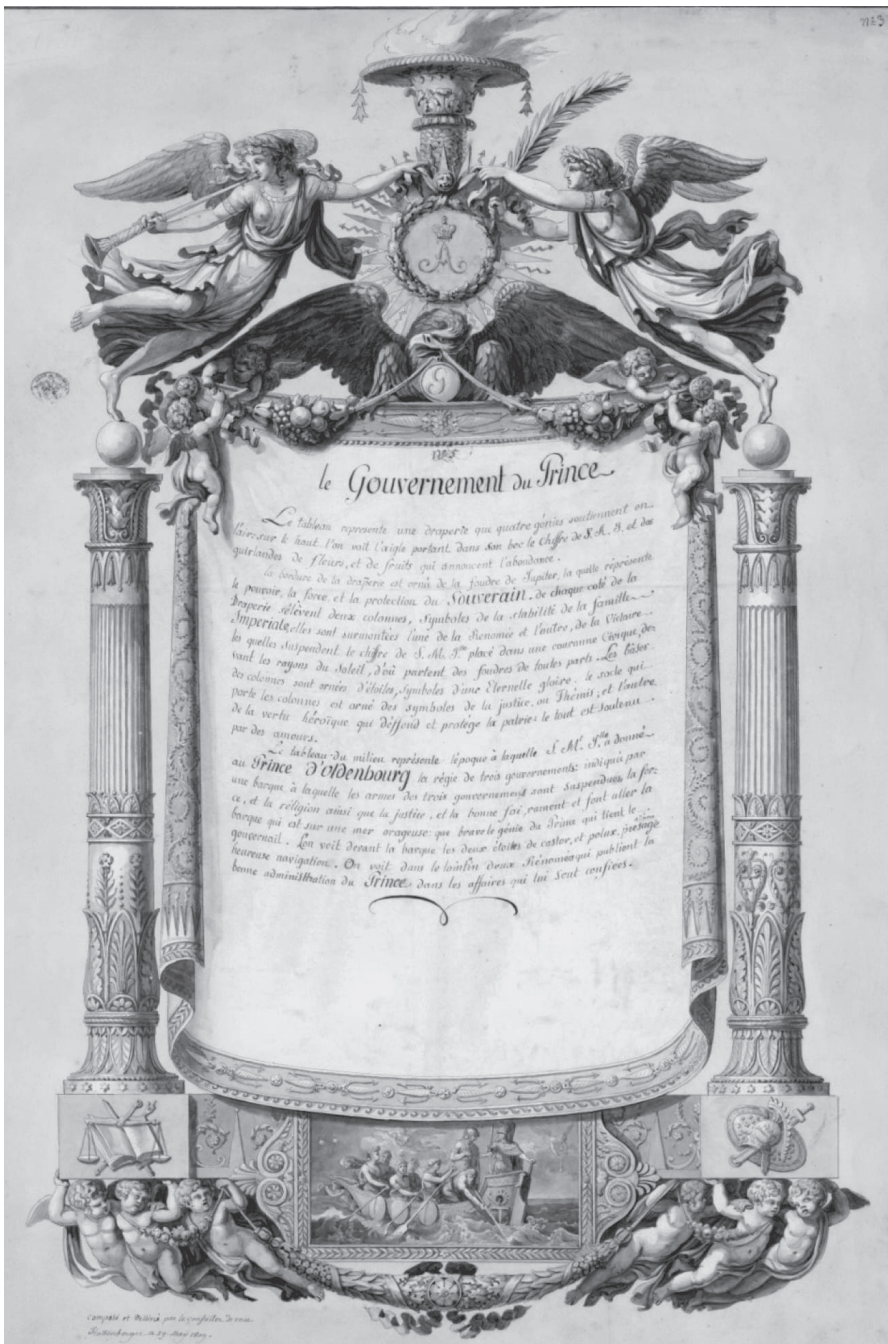 N.º 3
N.º 5.
le Gouvernement du Prince
Le tableau represente une draperie que quatre génies soutiennent en
l'air, sur le haut l'on voit l'aigle portant dans son bec le chiffre de S. A. I. et des
guirlandes de fleurs, et de fruits qui annoncent l'abondance.
la bordure de la draperie est orné de la foudre de Jupiter, la quelle représente
le pouvoir, la force, et la protection du Souverain, de chaque coté de la
Draperie s'élèvent deux colonnes, Symboles de la stabilité de la famille
Imperiale, elles sont surmontées l'une de la Renomée et l'autre, de la Victoire
les quelles suspendent le chiffre de S. M. I.le placé dans une couronne Civique, de-
vant les rayons du Soleil, d'où partent des foudres de toutes parts. Les bases
des colonnes sont ornées d'étoiles, Symboles d'une Eternelle gloire. le socle qui
porte les colonnes est orné des symboles de la justice, ou Thémis, et l'autre
de la vertu héroïque qui déffend et protége la patrie: le tout est soutenu
par des amours.
Le tableau du milieu représente l'époque à laquelle S. M. I.le a donné
au Prince d'Oldenbourg la régie de trois gouvernements: indiqué par
une barque à laquelle les armes des trois gouvernement sont suspendues, la for-
ce, et la réligion ainsi que la justice, et la bonne foi, rament et font aller la
barque qui est sur une mer orageuse: que brave le génie du Prince qui tient le
gouvernail. L'on voit devant la barque les deux étoiles de castor, et polux, présage
heureuse navigation. On voit dans le lointin deux Rénomées qui publient la
bonne administration du Prince dans les affaires qui lui sont confiées.
A
G
composé et dessiné par le